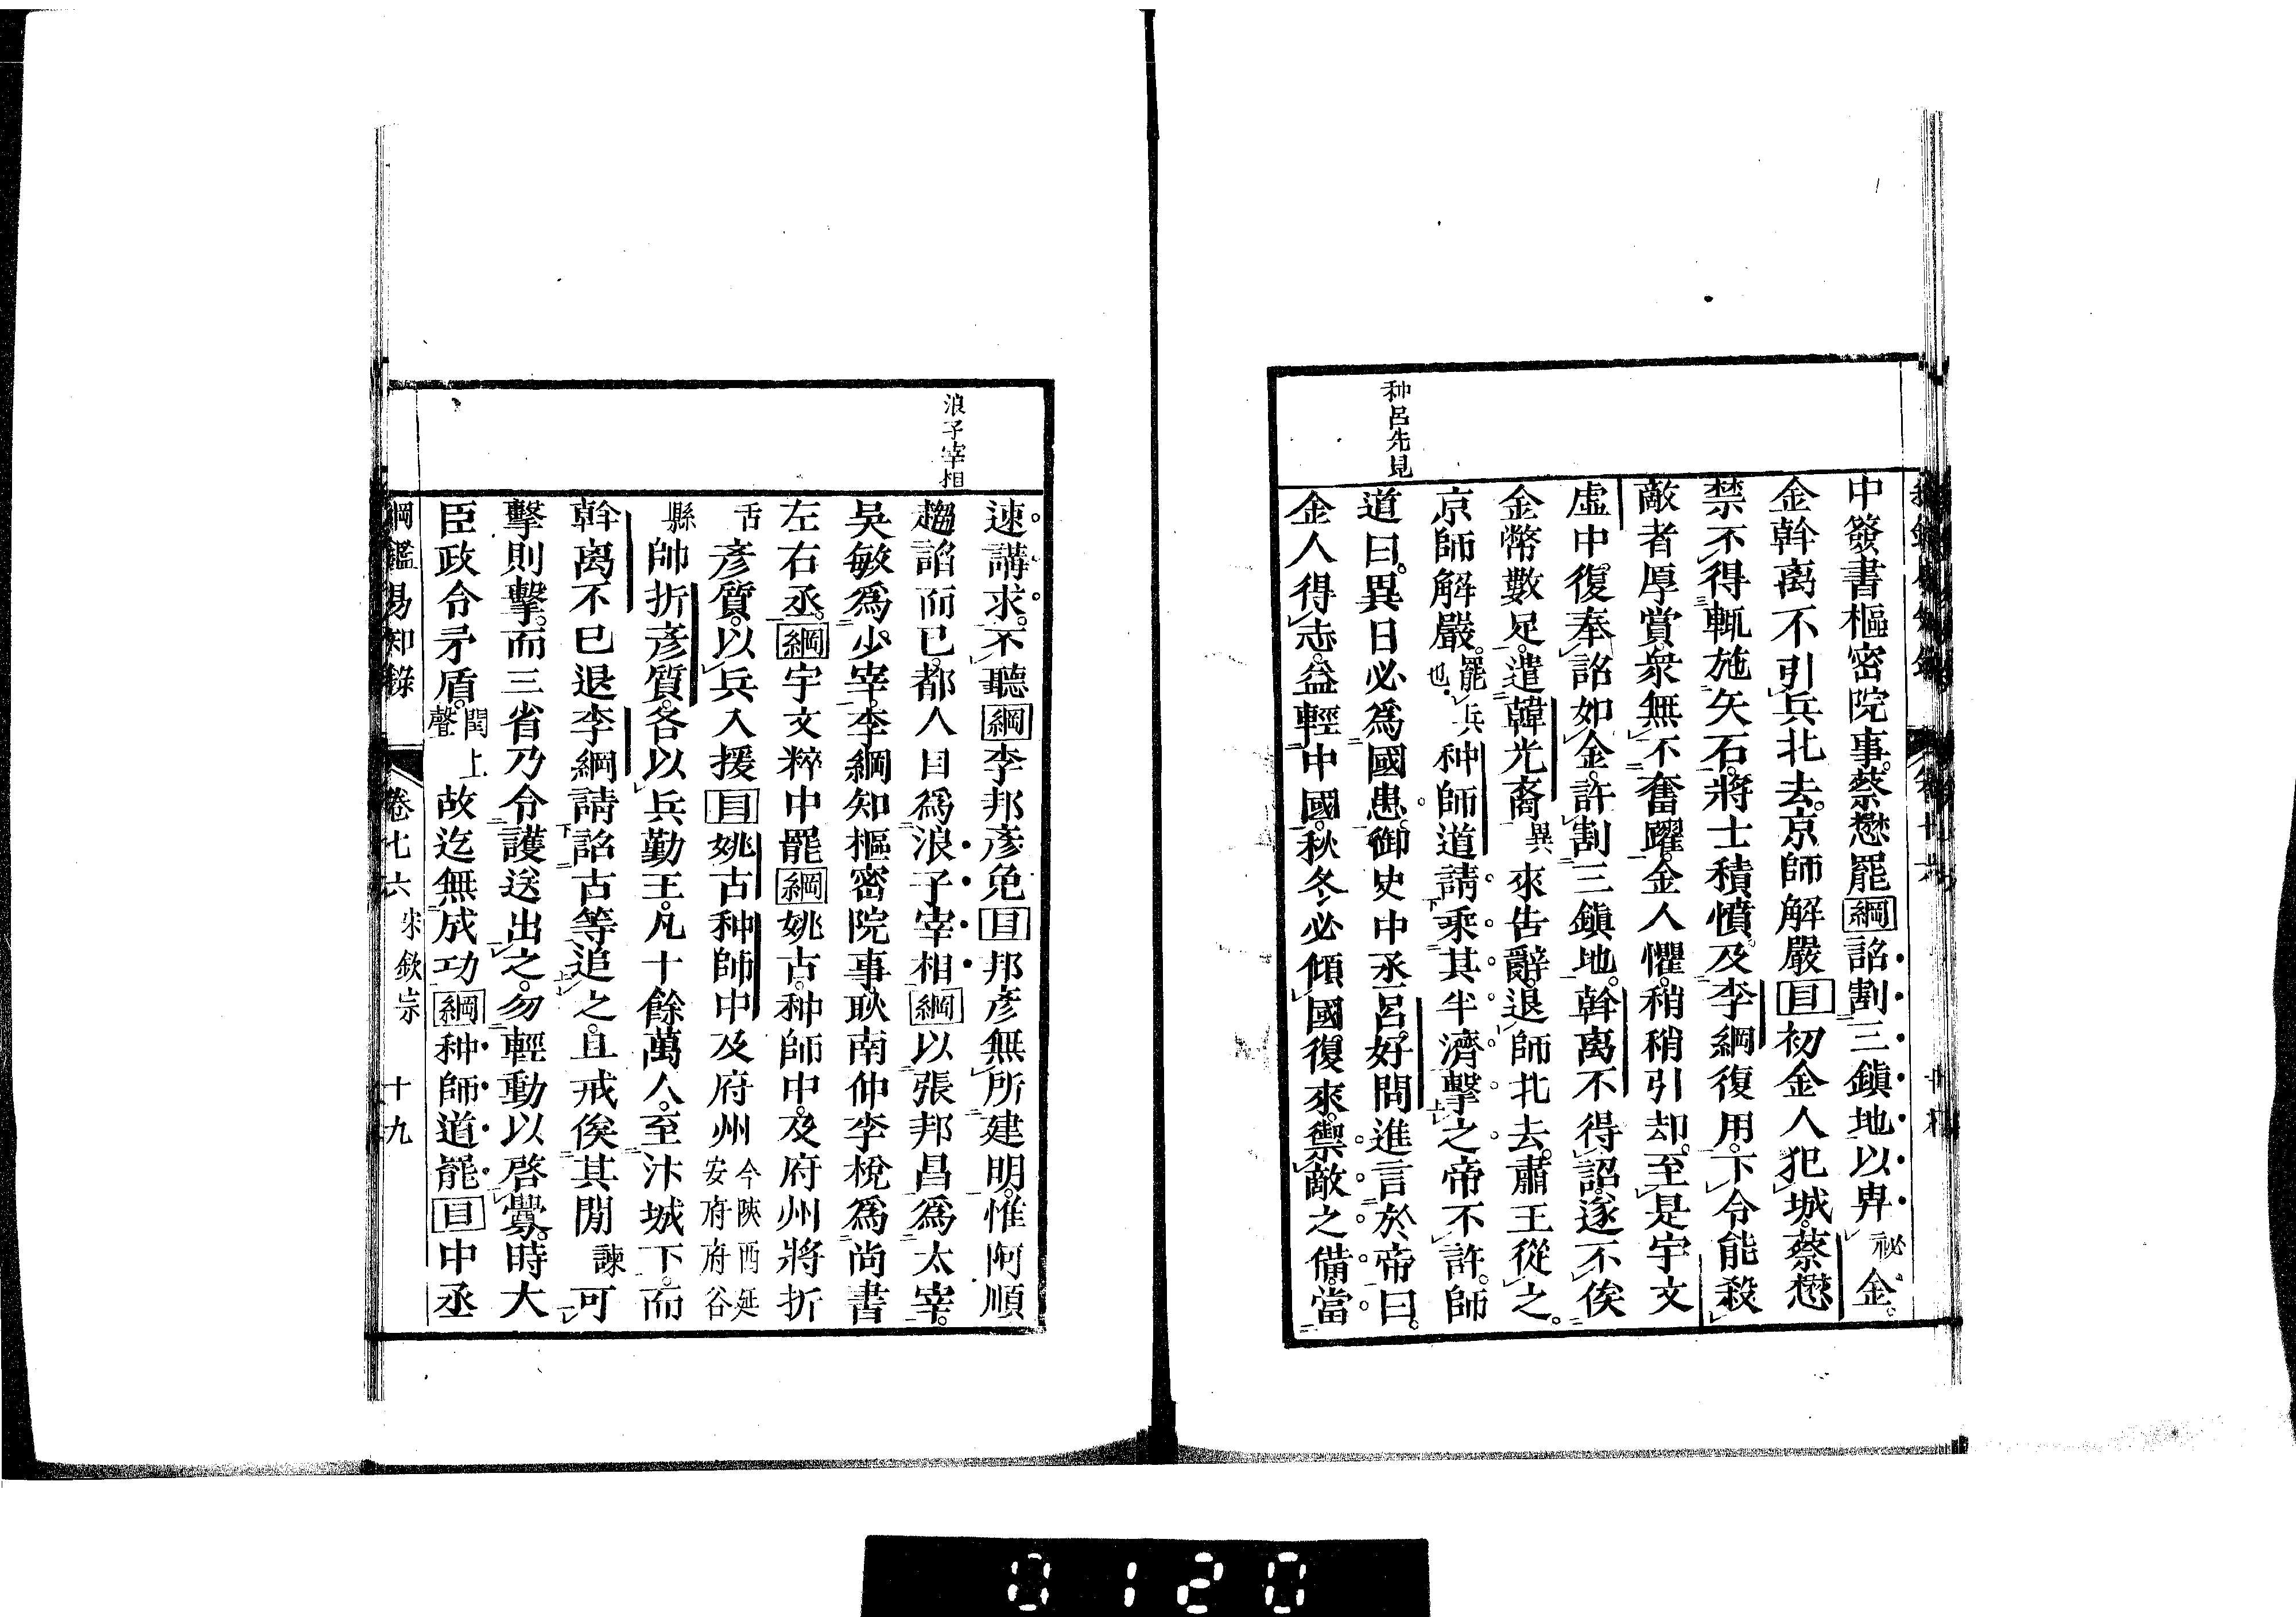 中簽書樞密院事。蔡懋罷綱詔割三鎮地以畀祕金。
金斡离不引兵北去。京師解嚴目初金人犯城。蔡懋
禁不得輒施矢石。將士積憤。及李綱復用。下令能殺
敵者厚賞。衆無不奮躍。金人懼。稍稍引却。至是宇文
虛中。復奉詔如金。許割三鎮地。斡离不得詔。遂不俟
金幣數足。遣韓光裔異來告辭。退師北去。肅王從之。
京師解嚴。罷兵也。种師道請乘其半濟擊之帝不許。師
道曰。異日必爲國患。御史中丞呂好問進言於帝曰。
金人得志。益輕中國。秋冬必傾國復來。禦敵之備。當
种呂先見
速講求。不聽綱李邦彥免目邦彥無所建明。惟阿順
趨諂而已。都人目爲浪子宰相綱以張邦昌爲太宰。
吳敏爲少宰。李綱知樞密院事耿南仲李梲爲尚書
左右丞。綱宇文粹中罷綱姚古。种師中。及府州將折
彥質。以兵入援目姚古种師中及府州今陝西延安府府谷
縣帥折彥質。各以兵勤王。凡十餘萬人。至汴城下。而
斡离不已退李綱請詔古等追之。且戒俟其閒諫可
擊則擊。而三省乃令護送出之。勿輕動以啓釁。時大
臣政令矛盾。閏上聲故迄無成功綱种師道罷目中丞
浪子宰相
綱鑑易知錄 卷七六 宋欽宗 十九
0120